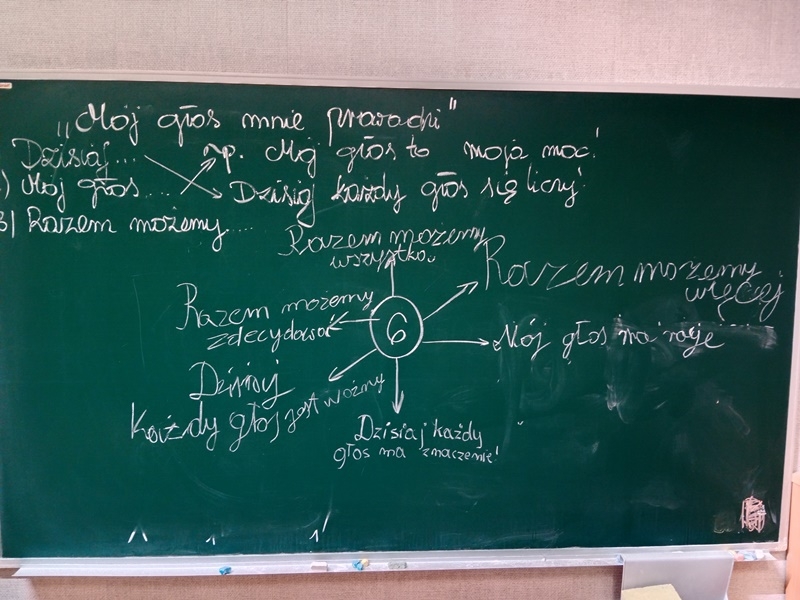 „Mój głos mnie prowadzi"
Dzisiaj... np. Mój głos to moja moc!
) Mój głos.... Dzisiaj każdy głos się liczy!
3) Razem możemy....
Razem możemy
wszystko
Razem możemy
więcej
Razem możemy
zdecydować
6
Mój głos ma rację
Dzisiaj
Każdy głos jest ważny
Dzisiaj każdy
głos ma znaczenie!